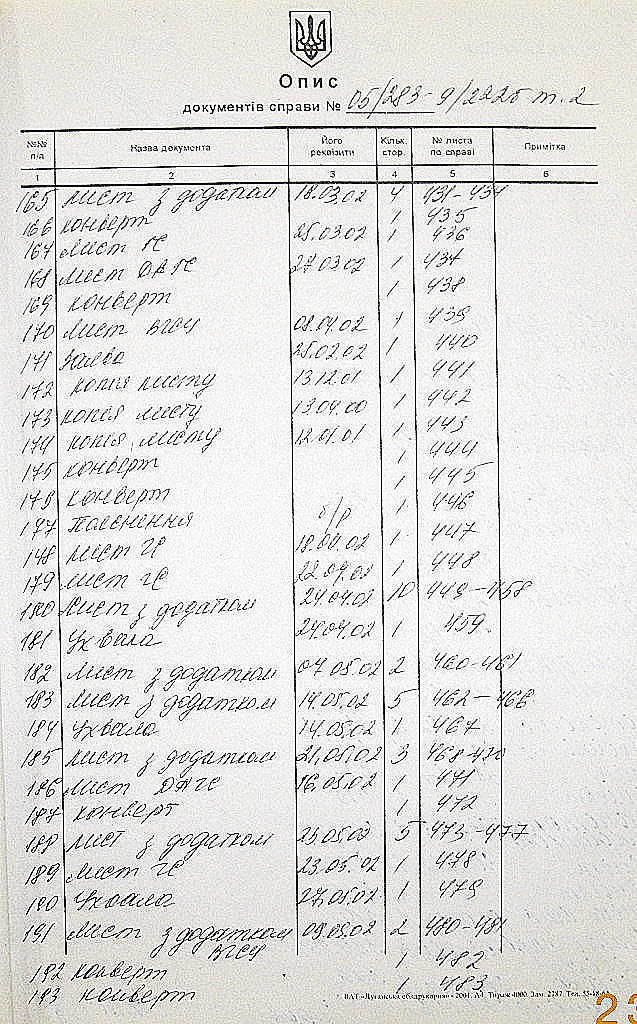 Опис
документів справи № 05/283-9/222б т.2
№№ п/п Назва документа Його реквізити Кільк. стор. № листа по справі Примітка
1 2 3 4 5 6
165 лист з додатком 18.03.02 4 431-434
166 конверт 1 435
167 лист ГС 25.03.02 1 436
168 лист ДАГС 27.03.02 1 437
169 конверт 1 438
170 лист ВГСУ 08.04.02 1 439
171 Заява 25.02.02 1 440
172 копія листу 13.12.01 1 441
173 копія листу 13.04.00 1 442
174 копія листу 12.01.01 1 443
175 конверт 1 444
176 конверт 1 445
177 Пояснення б/р 1 446
178 лист ГС 18.04.02 1 447
179 лист ГС 22.04.02 1 448
180 Лист з додатком 24.04.02 10 449-458
181 Ухвала 24.04.02 1 459
182 лист з додатком 07.05.02 2 460-461
183 лист з додатком 14.05.02 5 462-466
184 Ухвала 14.05.02 1 467
185 лист з додатком 21.05.02 3 468-470
186 лист ДАГС 16.05.02 1 471
187 конверт 1 472
188 лист з додатком 23.05.02 5 473-477
189 лист ГС 23.05.02 1 478
190 Ухвала 27.05.02 1 479
191 лист з додатком ВГСУ 2 480-481
192 конверт 1 482
193 конверт 1 483
ВАТ «Луганська облдрукарня» 2001. Тираж 4000. Зам. 2787.
23